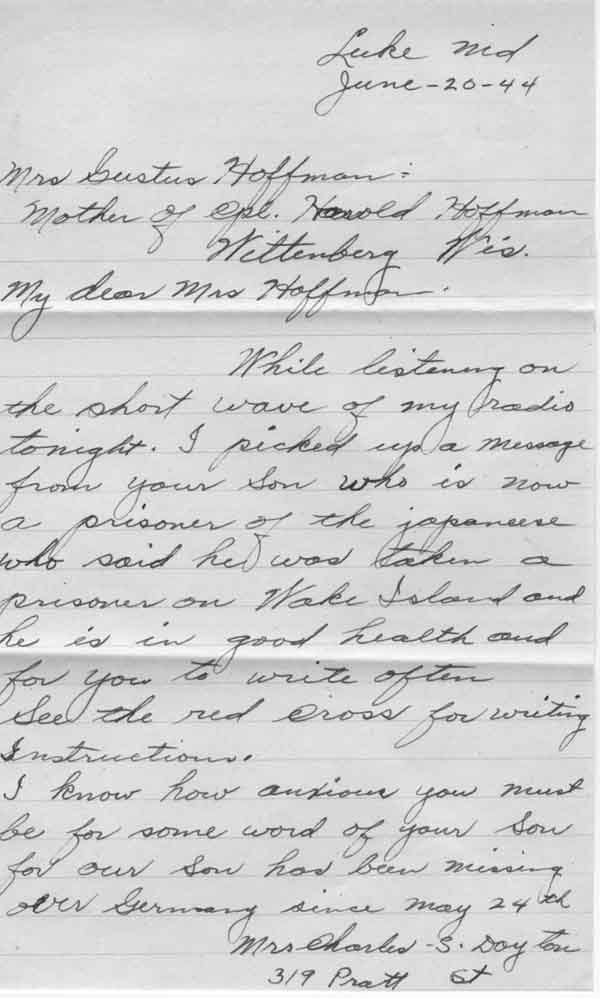 Luke Md
June-20-44
Mrs Gustus Hoffman:
Mother of Cpl. Harold Hoffman
Wittenberg Wis.
My dear Mrs Hoffman.
While listening on
the short wave of my radio
tonight. I picked up a message
from your son who is now
a prisoner of the japaneese
who said he was taken a
prisoner on Wake Island and
he is in good health and
for you to write often
See the red cross for writing
Instructions.
I know how anxious you must
be for some word of your Son
for our son has been missing
over Germany since may 24th
Mrs Charles - S. Dayton
319 Pratt St